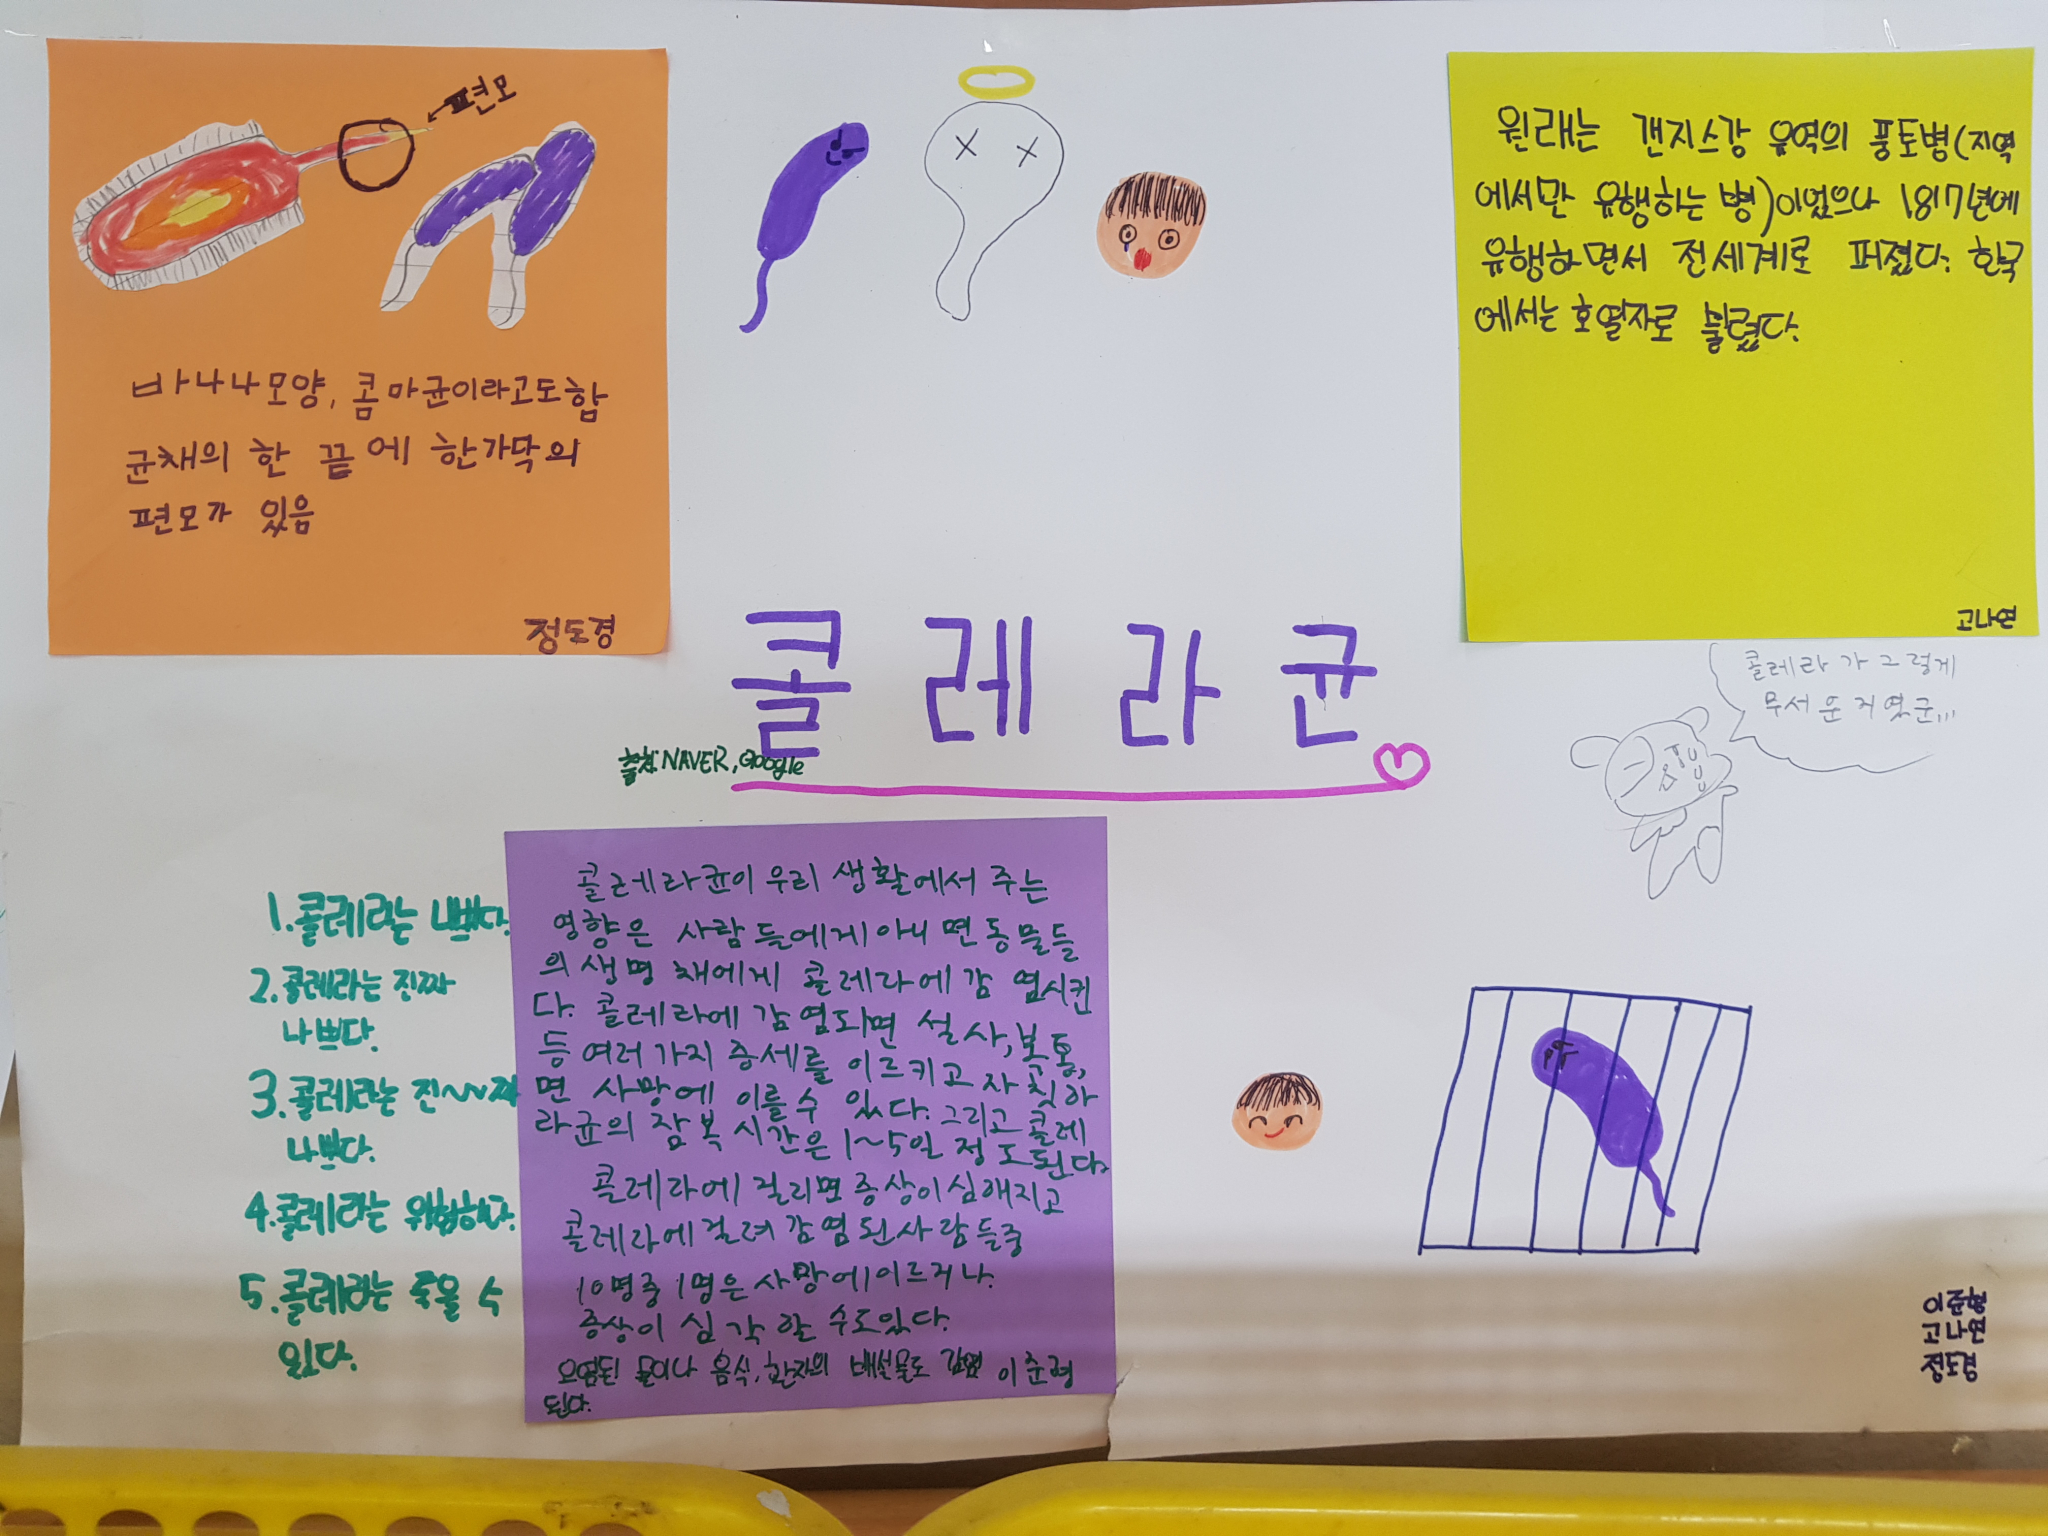 편모
바나나모양, 콤마균이라고도함
균채의 한 끝에 한가닥의
편모가 있음
정도경
원래는 갠지스강 유역의 풍토병(지역
에서만 유행하는 병)이었으나 1817년에
유행하면서 전세계로 퍼졌다. 한국
에서는 호열자로 불렸다.
고나연
콜레라균
출처:NAVER, Google
콜레라가 그렇게
무서운 거였군...
1.콜레라는 나쁘다.
2.콜레라는 진짜
나쁘다.
3.콜레라는 진~~짜
나쁘다.
4.콜레라는 위험하다.
5.콜레라는 죽을 수
있다.
콜레라균이 우리 생활에서 주는
영향은 사람들에게아니면동물들
의생명채에게 콜레라에감염시킨
다. 콜레라에감염되면 설사,복통,
등여러가지 증세를 이르키고자칫하
면 사망에 이를수 있다.그리고콜레
라균의 잠복시간은1~5일 정도된다.
콜레라에 걸리면증상이심해지고
콜레라에걸려감염된사람들중
10명중1명은사망에이르거나.
증상이 심각할 수도있다.
오염된 물이나 음식,환자의 배설물도 감염
된다.
이준형
이준형
고나연
정도경